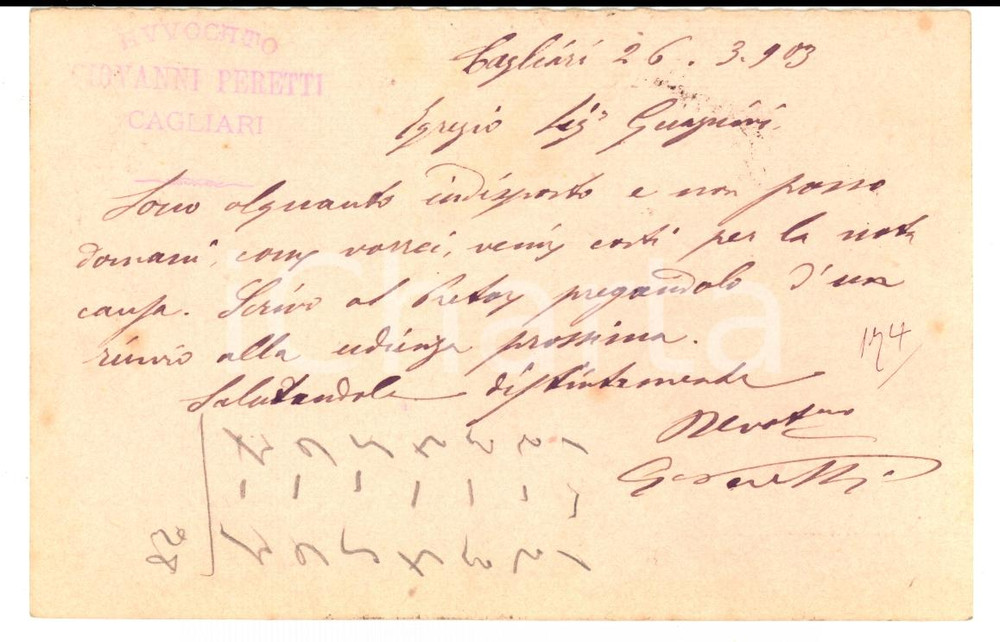 AVVOCATO
GIOVANNI PERETTI
CAGLIARI
Cagliari 26.3.903
Egregio Sigr Guagnini.
Sono alquanto indisposto e non posso
domani, come vorrei, venire costì per la nota
causa. Scrivo al Pretore pregandolo d'un
rinvio alla udienza prossima.
174
Salutandola distintamente
Devotmo
GPeretti
1 2 3 4 5 6 7
1 2 3 4 5 6 7
28
iCharta